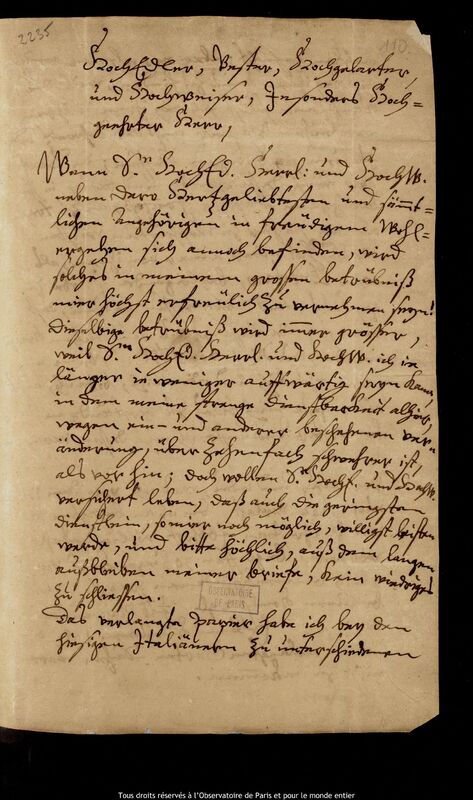 2235
110.
HochEdler, Vester, Hochgelarter,
und Hochweiser, Insonders Hoch-
geehrter Herr,
Wann S.rn HochEd. Herrl. und HochW.
neben dero Hertzgeliebtesten und sämt-
lichen Angehörigen in freüdigem Wohl-
ergehen sich annoch befinden, wird
solches in meinem grossen betrübniß
mier höchst erfreülich zu vernehmen seyn!
dieselbige betrübniß wird immer grösser,
weil S.rn HochEd. Herrl. und HochW. ich ie
länger ie weniger auffwärtig seyn kann,
in dem meine strenge dienstbarkeit alhier,
wegen ein- und anderer beschehenen ver-
änderung, über zehenfach schwehrer ist,
als vor hin; doch wollen S.e HochE. und HochW.
versichert leben, daß auch die geringsten
dienstlein, so mier noch möglich, willigst leisten
werde, und bitte höchlich, auß dem langen
außbleiben meiner briefe, kein wiedriges
zu schliessen.
OBSERVATOIRE
DE PARIS
Das verlangte papier habe ich bey den
hiesigen Italiänern zu unterschiedenen
Tous droits réservés à l'Observatoire de Paris et pour le monde entier